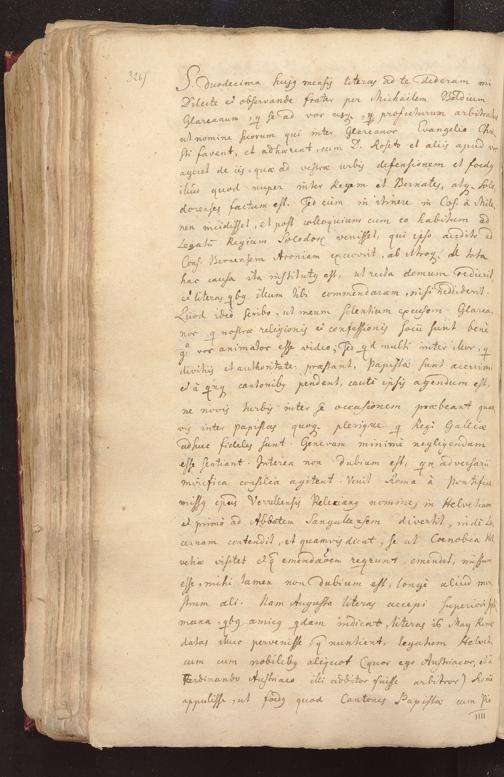 326/
S. duodecima hujq mensis literas ad te dederam mi
Dilecte et observande frater per Michaëlem Boldium
Glareanum, q se ad vos usq, profecturum arbitratur
ut nomine suorum qui inter Glareanos Evangelio Chri
sti favent, et adhærent, cum D. Roseto et aliis apud vos
ageret de iis, quæ ad vestræ urbis defensionem et foedq
illud quod nuper inter Regem et Bernates, atq, Solo
dorenses factum est. Sed cum in itinere in Cos. à Mile
nen incidisset, et post colloquium cum eo habitum ad
Legatū Regium Solodoræ venisset, qui ipso audito ad
Cons. Bernensem excurrit, ab utroq, de tota
hac causa ita institutq est, ut recta domum redierit
et literas qbq illum tibi commendaram, mihi reddiderit.
Quod ideo scribo, ut meum silentium excusem. Glarea
nos q nostræ religionis et confessionis socii sunt bene
ga vos animatos esse video, sed qd multi inter illos, q
divitiis et authoritate præstant, Papistæ sunt acerrimi
et à qnq cantonibq pendent, cautè ipsis agendum est,
ne novis turbis inter se occasionem præbeant quas
vis inter papistas quoq, plerique q Regi Galliæ
adhuc fideles sunt Genevam minimè negligendam
esse sentiant. Interea non dubium est, qn adversarii
mirifica consilia agitent. Venit Romà à Pontifice
missq epus Verullensis nomine, in Helvetiam
et primò ad Abbatem Sangallensem divertit, indè Lu
cernam contendit, et quamvis dicat, se ut Coenobia Hel
vetiæ visitet et q emendaōem reqrunt emendet, missum
esse, mihi tamen non dubium est, longè aliud mo
strum ali. Nam Augusta literas accepi superiori sep
mana, qbq amicq qdam indicat, literas 16 May Romæ
datas illuc pervenisse q nuntient, legatum Helveti
cum cum nobilibq aliquot (quos ego Austriacos, et à
Ferdinando Austriaco illi additos fuisse arbitror) Romæ
appulisse, ut foedq quod Cantones Papistæ cum Pio
IIII